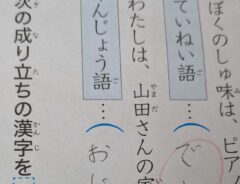 ぼくのしゅ味は、ピア
ていねい語…（で
わたしは、山田さんの
んじょう語…（お
次の成り立ちの漢字を